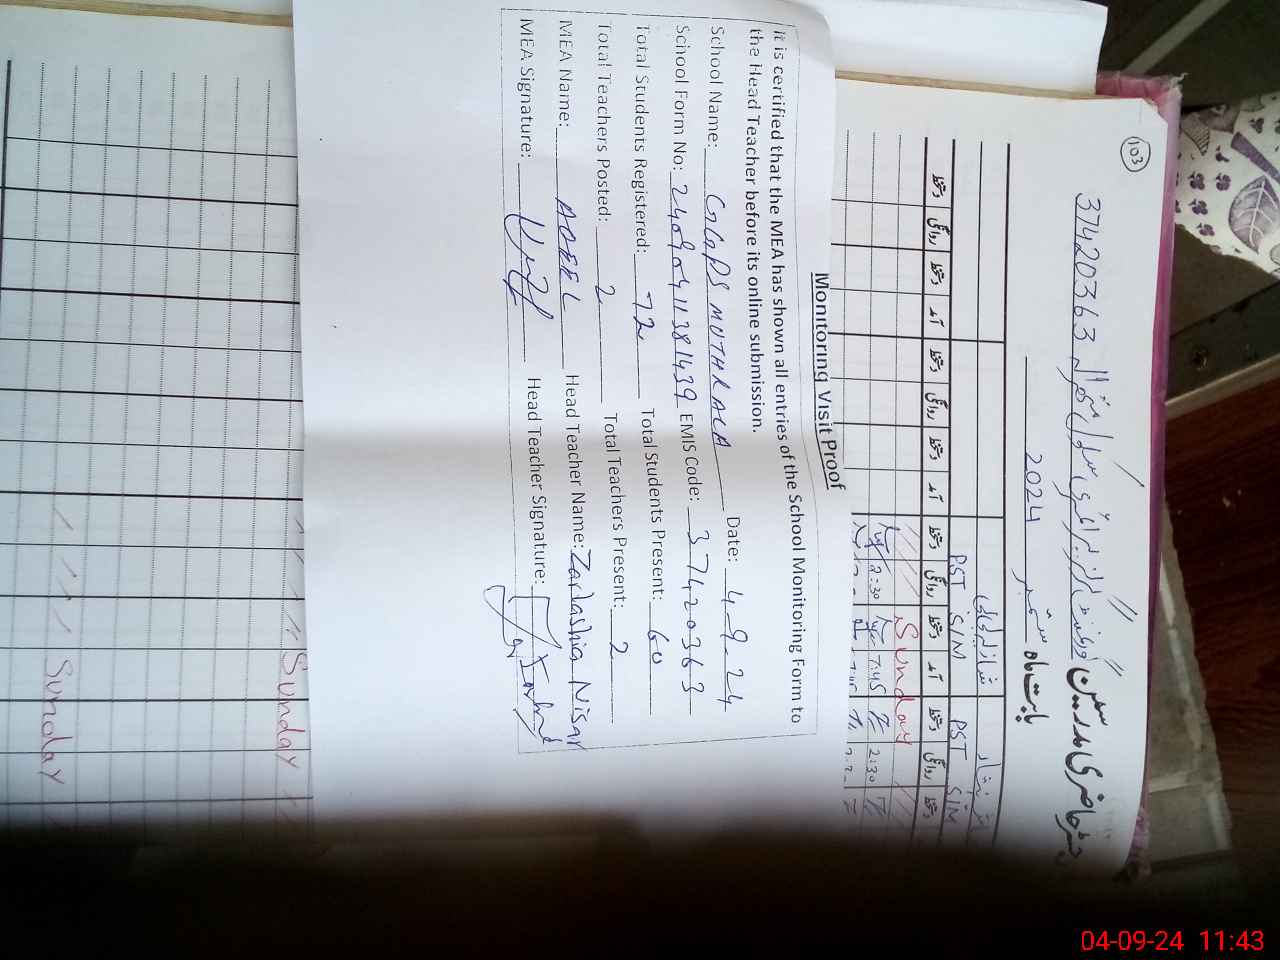 103
37420363
بابت ماہ ستمبر 2024
PST S/M PST S/M
دستخط روانگی دستخط آمد دستخط روانگی دستخط آمد دستخط روانگی دستخط آمد دستخط روانگی دستخط
Sunday
2:30 7:45 2:30
Monitoring Visit Proof
It is certified that the MEA has shown all entries of the School Monitoring Form to
the Head Teacher before its online submission.
School Name: GGPS MUTHRALA Date: 4-9-24
School Form No: 24090411381439 EMIS Code: 37420363
Total Students Registered: 72 Total Students Present: 60
Total Teachers Posted: 2 Total Teachers Present: 2
MEA Name: ADEEL Head Teacher Name: Zarlashia Nisar
MEA Signature: Head Teacher Signature:
Sunday
Sunday
04-09-24 11:43